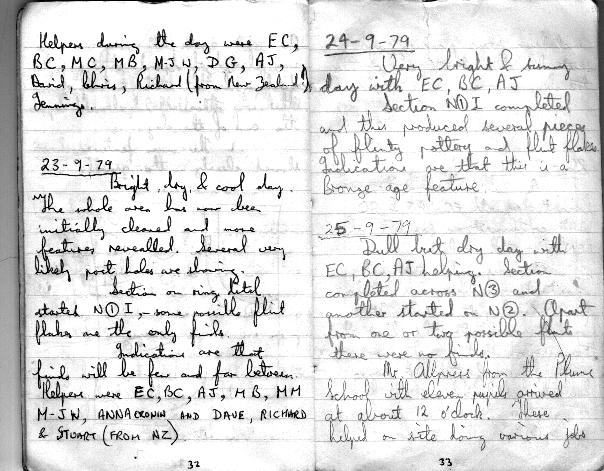 Helpers during the day were EC,
BC, MC, MB, M-JW, DG, AJ,
David, Chris, Richard (from New Zealand!)
Jennings.
23-9-79
Bright, dry, & cool day.
The whole area has now been
initially cleared and more
features revealled. Several very
likely post holes are showing.
Section on ring ditch
started N① I, - some possible flint
flakes are the only finds.
Indications are that
finds will be few and far between.
Helpers were EC, BC, AJ, MB, MM
M-JW, ANNA CRONIN AND DAVE, RICHARD
& STUART (FROM NZ).
32
24-9-79
Very bright & sunny
day with EC, BC, AJ
Section N① I completed
and this produced several pieces
of flinty pottery and flint flakes.
Indications are that this is a
Bronze age feature.
25-9-79
Dull but dry day with
EC, BC, AJ helping. Section
completed across N③ and
another started on N②. Apart
from one or two possible flints
there were no finds.
Mr. from the Plume
School with eleven pupils arrived
at about 12 o'clock. These
helped on site doing various jobs
33